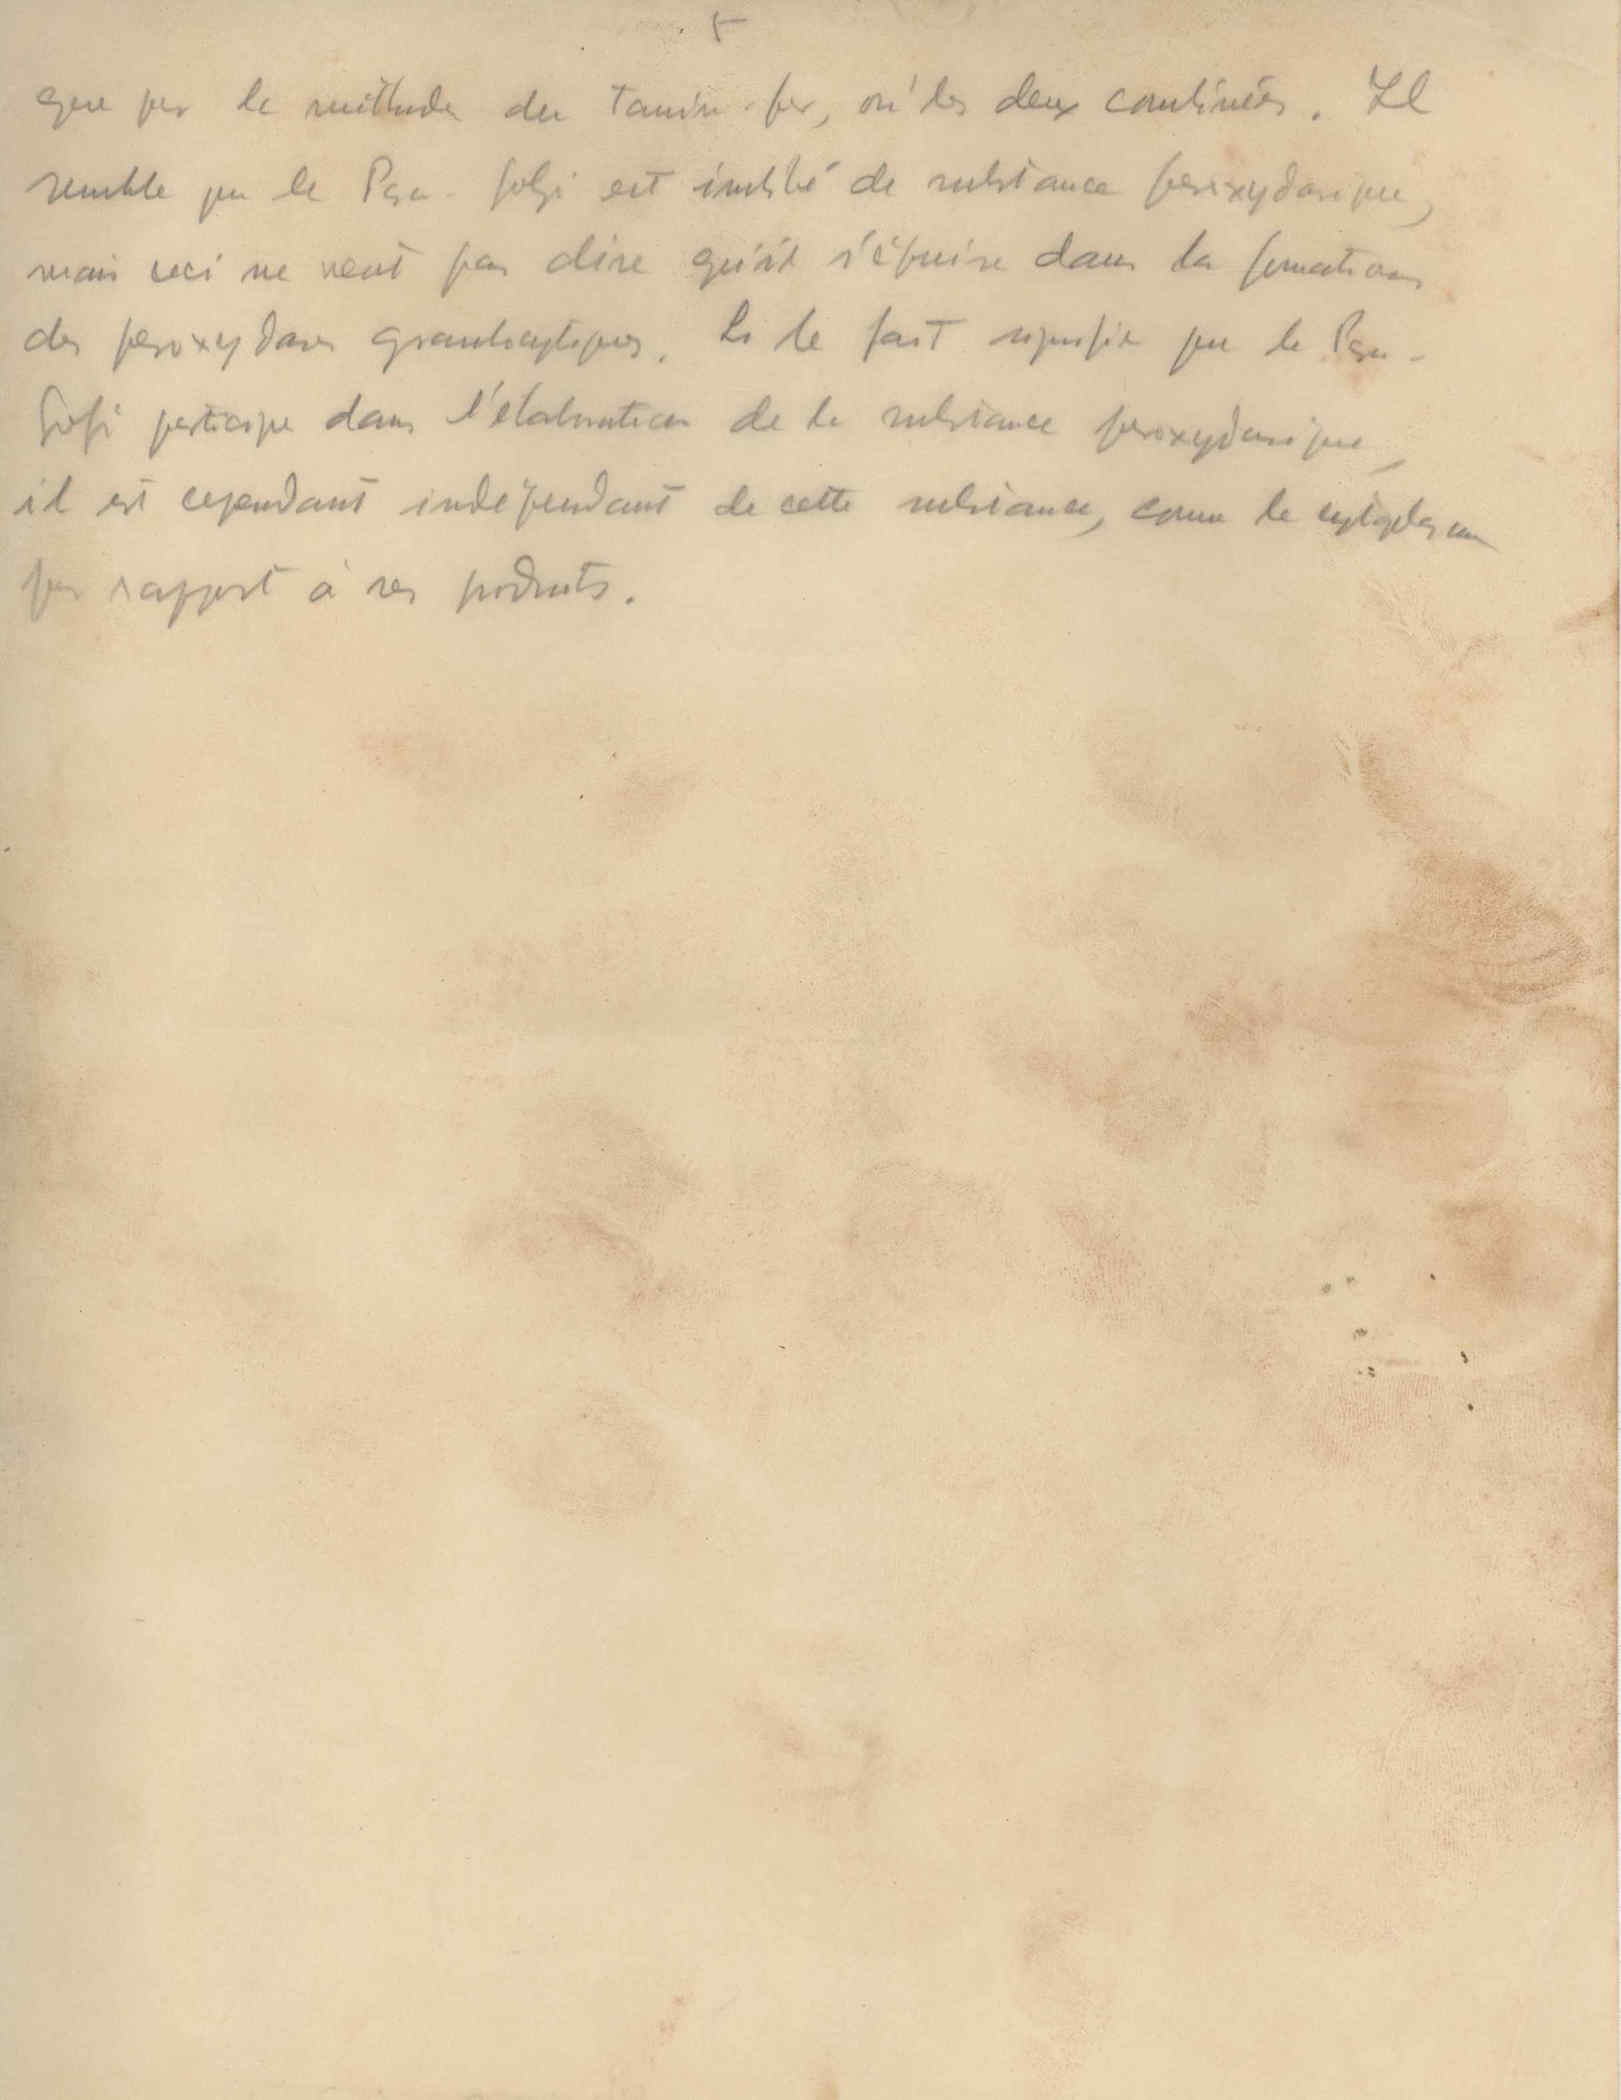 5
que par la méthode du Tanin-fer, ou les deux combinées. Il
semble que le Para-Golgi est imbibé de substance peroxydasique,
mais ceci ne veut pas dire qu'il s'épuise dans la formation
des peroxydases granulocytiques. Si le fait signifie que le Para-
Golgi participe dans l'élaboration de la substance peroxydasique,
il est cependant indépendant de cette substance, comme le cytoplasme
par rapport à ses produits.